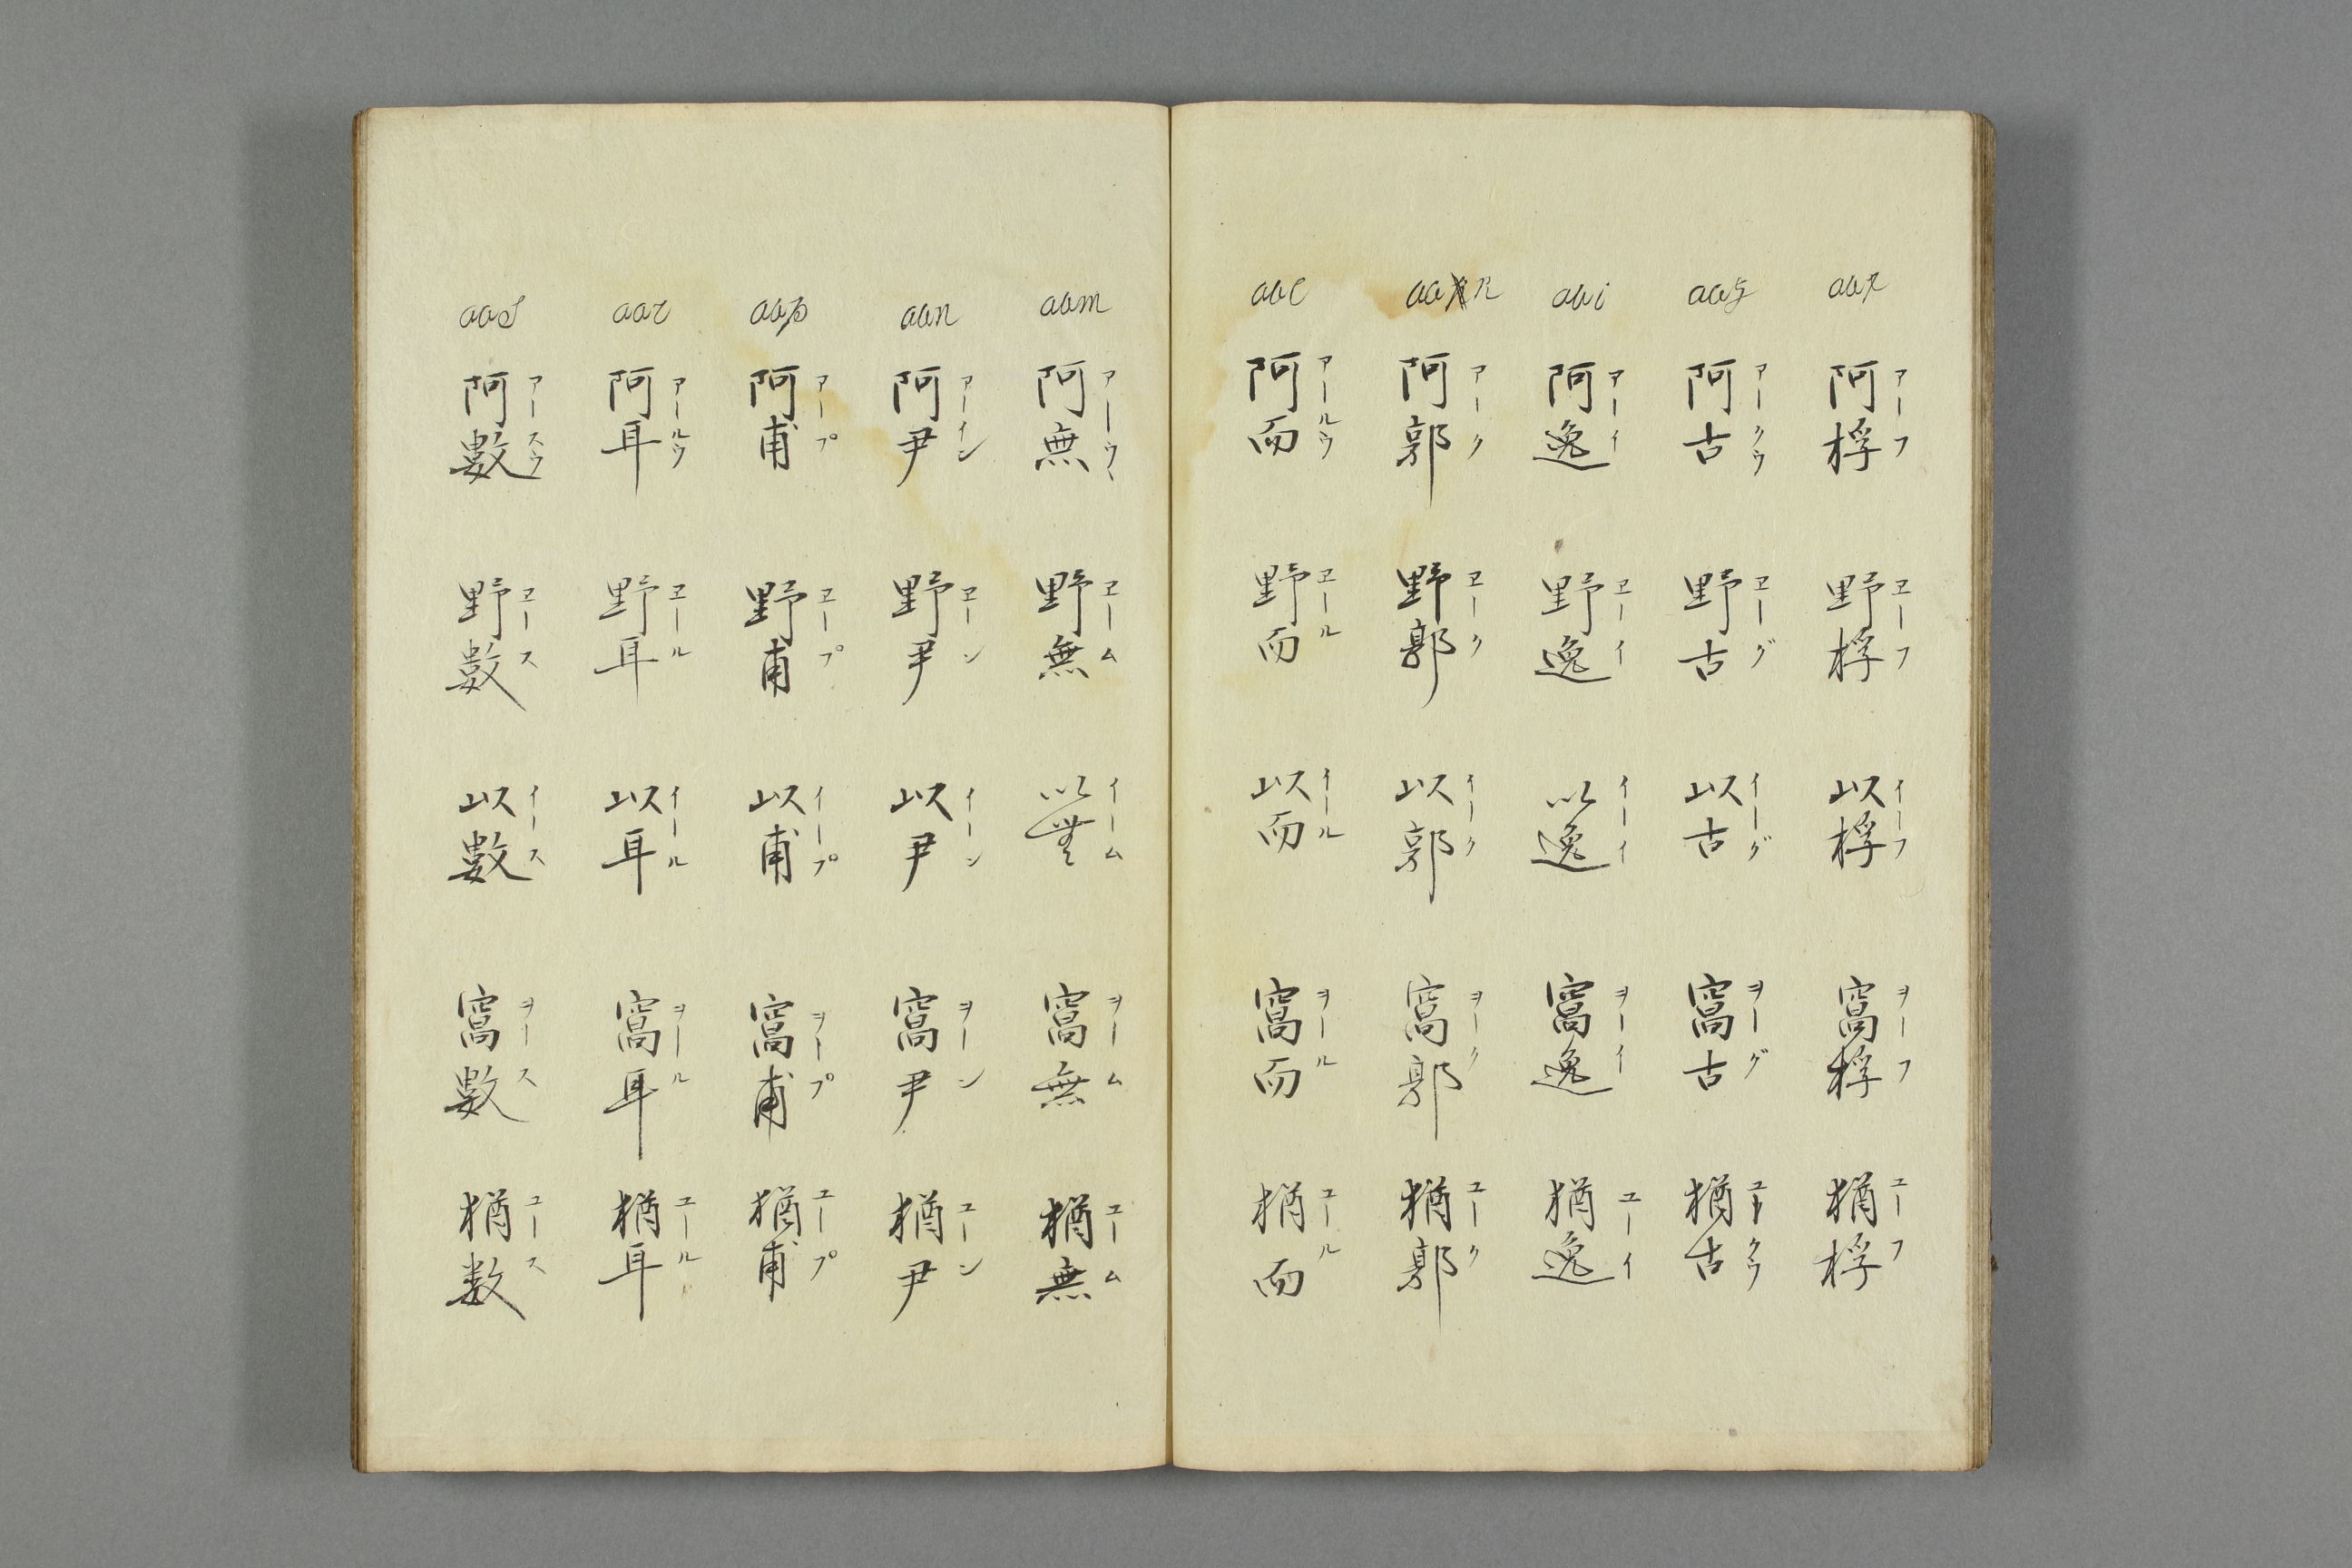 aaf
阿桴 野桴 以桴 窩桴 猶桴
アーフ ヱーフ イーフ ヲーフ ユーフ
aag
阿古 野古 以古 窩古 猶古
アークウ ヱーグ イーグ ヲーグ ユークウ
aai
阿逸 野逸 以逸 窩逸 猶逸
アーイ ヱーイ イーイ ヲーイ ユーイ
aak
阿郭 野郭 以郭 窩郭 猶郭
アーク ヱーク イーク ヲーク ユーク
aal
阿而 野而 以而 窩而 猶而
アールウ ヱール イール ヲール ユール
aam
阿無 野無 以無 窩無 猶無
アーウム ヱーム イーム ヲーム ユーム
aan
阿尹 野尹 以尹 窩尹 猶尹
アーイン ヱーン イーン ヲーン ユーン
aap
阿甫 野甫 以甫 窩甫 猶甫
アープ ヱープ イープ ヲープ ユープ
aar
阿耳 野耳 以耳 窩耳 猶耳
アールウ ヱール イール ヲール ユール
aas
阿數 野數 以數 窩數 猶数
アースウ ヱース イース ヲース ユース